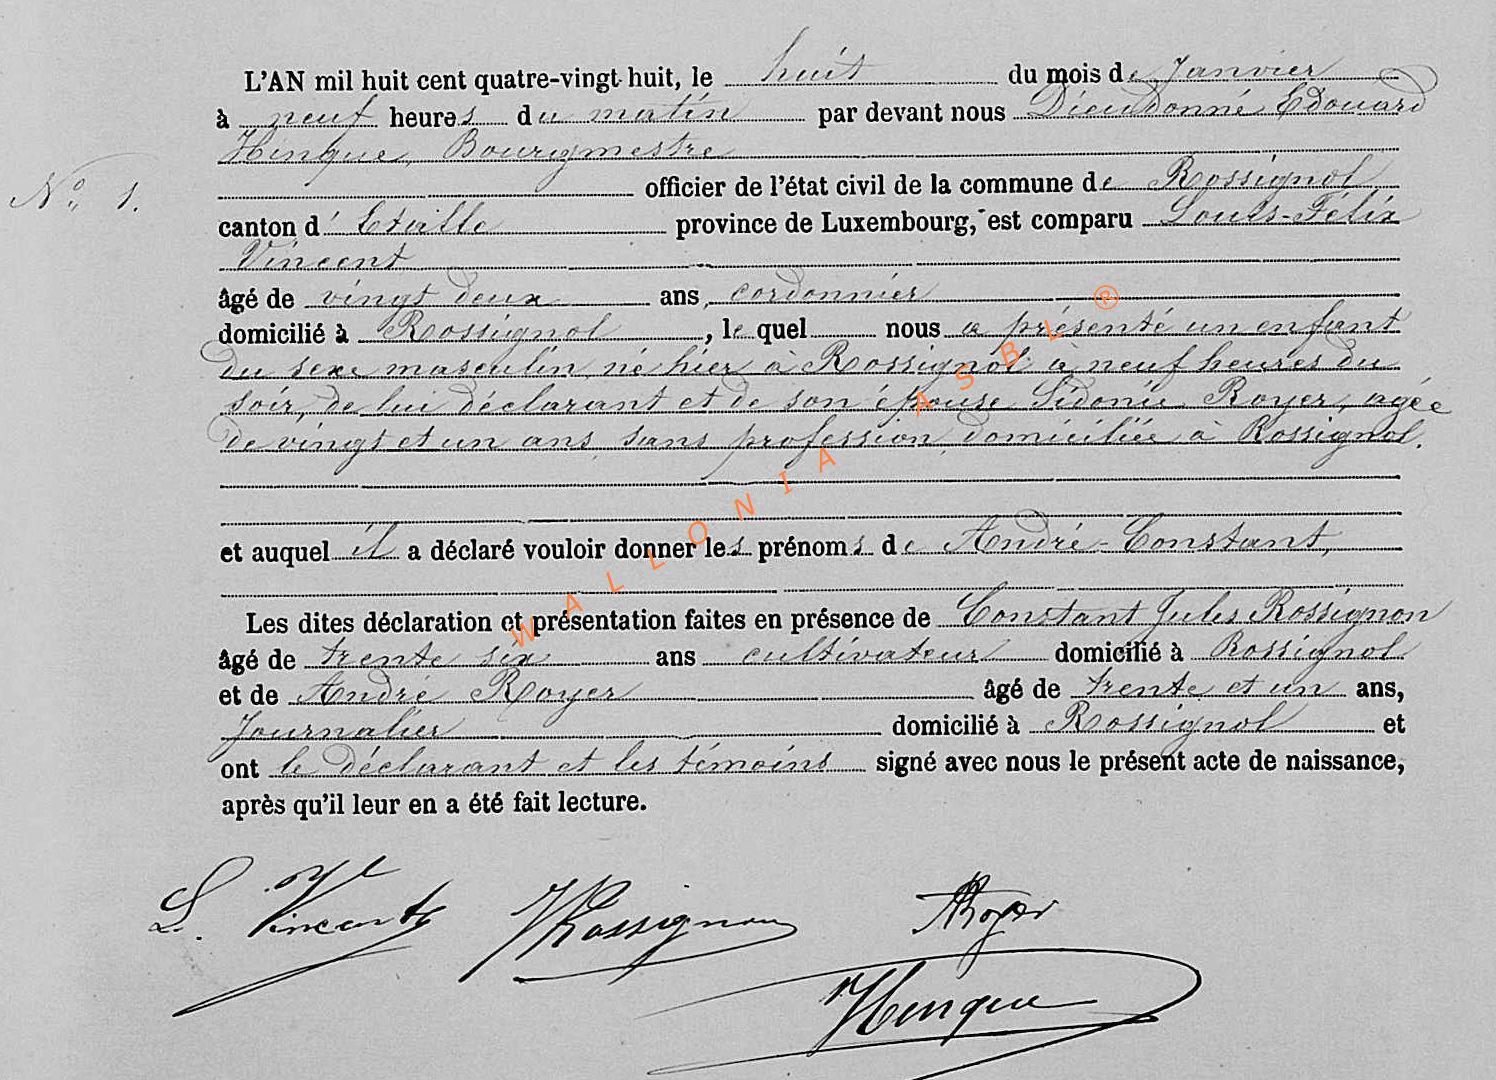 L'AN mil huit cent quatre-vingt huit, le huit du mois de Janvier
à neuf heures du matin par devant nous Dieudonné Edouard
Hinque, Bourgmestre
officier de l'état civil de la commune de Rossignol
N° 1.
canton d'Etalle province de Luxembourg, est comparu Louis-Félix
Vincent
âgé de vingt deux ans, cordonnier
domicilié à Rossignol, le quel nous a présenté un enfant
du sexe masculin, né hier à Rossignol à neuf heures du
soir, de lui déclarant et de son épouse Sidonie Royer, agée
de vingt et un ans, sans profession, domiciliée à Rossignol.
et auquel il a déclaré vouloir donner les prénoms de André-Constant,
Les dites déclaration et présentation faites en présence de Constant Jules Rossignon
âgé de trente six ans cultivateur domicilié à Rossignol
et de André Royer âgé de trente et un ans,
Journalier domicilié à Rossignol et
ont le déclarant et les témoins signé avec nous le présent acte de naissance,
après qu'il leur en a été fait lecture.
WALLONIA ASBL ®
L. Vincent
JRossignon
ARoyer
Hinque